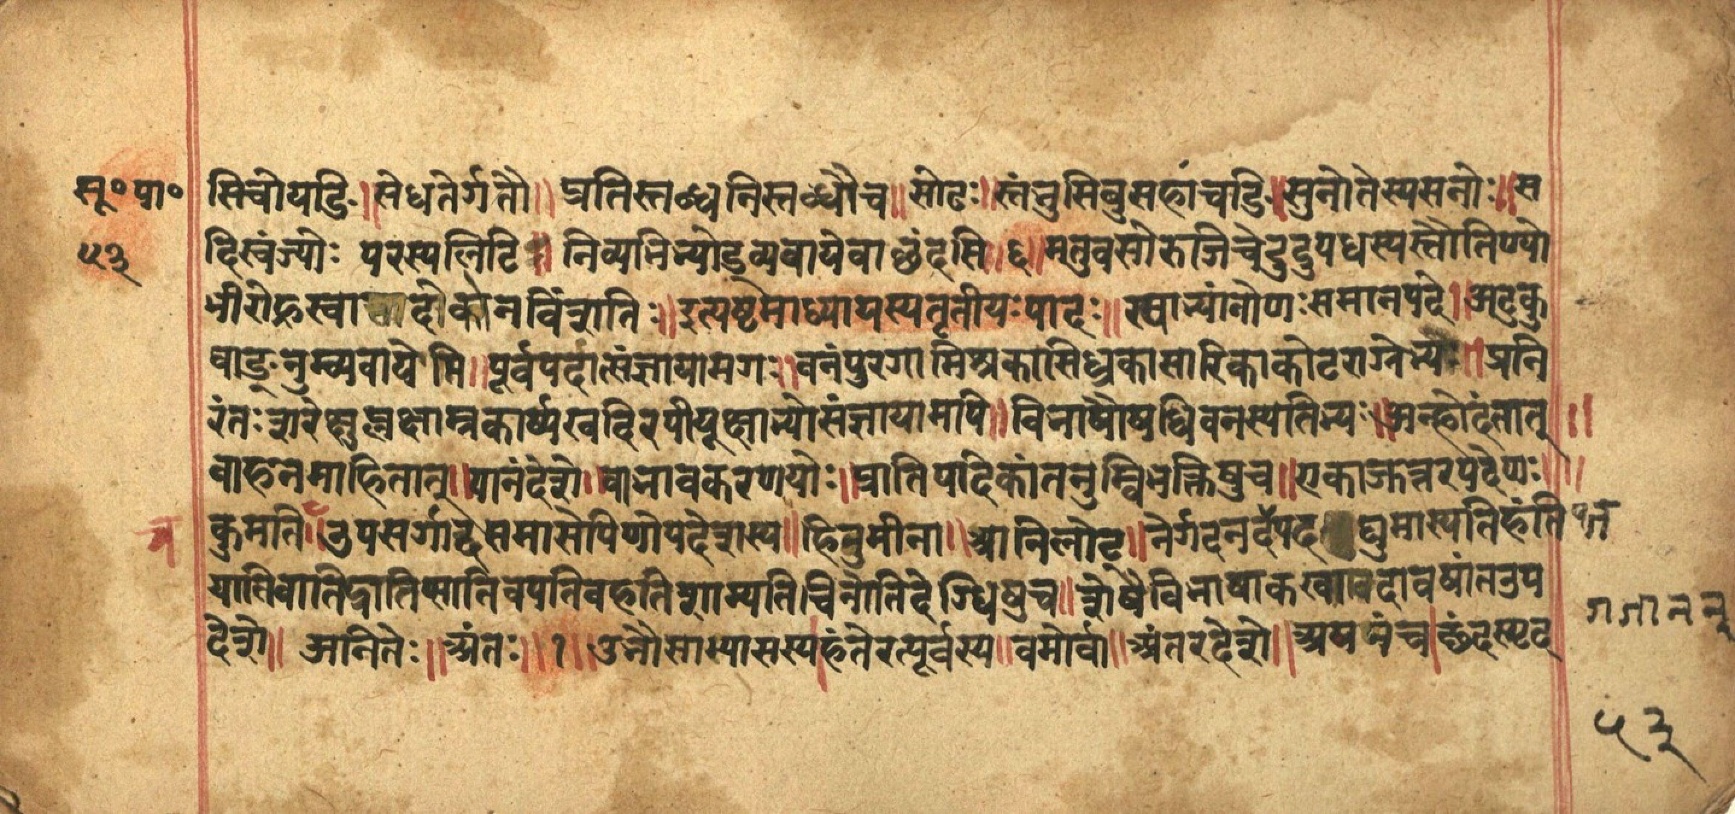 सू॰ पा॰
५३
सिचो यङि ॥ सेधतेर्गतौ ॥ प्रतिस्तब्धनिस्तब्धौ च ॥ सोटः ॥ स्तंवुसिवुसहां चङि ॥ सुनोतेः स्यसनोः ॥ स
दिस्वंज्योः परस्य लिटि ॥ निव्यभिभ्योड्व्यवाये वा छंदसि ॥ ६ ॥ मतुवसोरुजिचेदुदुपधस्यस्तौतिण्यो
भीरोह्रस्वा दो कानविंशतिः ॥ इत्यष्टमाध्यायस्य तृतीयः पादः ॥ रषाभ्यां नोणः समानपदे ॥ अट्कु
प्वाङ्नुम्व्यवायेपि ॥ पूर्वपदात्संज्ञायामगः ॥ वनं पुरगामिश्रकासिध्रकासारिकाकोटराग्रेभ्यः ॥ प्रनि
रंतःशरेक्षुप्लक्षाम्रकार्ष्यखदिरपीयूक्षाभ्योसंज्ञायामपि ॥ विभाषौषधिवनस्पतिभ्यः ॥ अन्होदंतात् ॥
वाहनमाहितात् ॥ पानं देशे ॥ वा भावकरणयोः ॥ प्रातिपदिकांतनुम्विभक्तिषु च ॥ एकाजुत्तरपदेणः ॥
कुमति ॥ उपसर्गादसमासेपि णोपदेशस्य ॥ हिनुमीना ॥ आनि लोट् ॥ नेर्गदनदपतपद घुमास्यतिहंति
यातिवातिद्रातिप्सातिवपतिवहतिशाम्यतिचिनोतिदेग्धिषु च ॥ शेषे विभाषाकखादावषांत उप
देशे ॥ अनितेः ॥ अंतः ॥ १ ॥ उभौ साभ्यासस्य हंतेरत्पूर्वस्य ॥ वमोर्वा ॥ अंतरदेशे ॥ अयनं च छंदस्यृद
५३